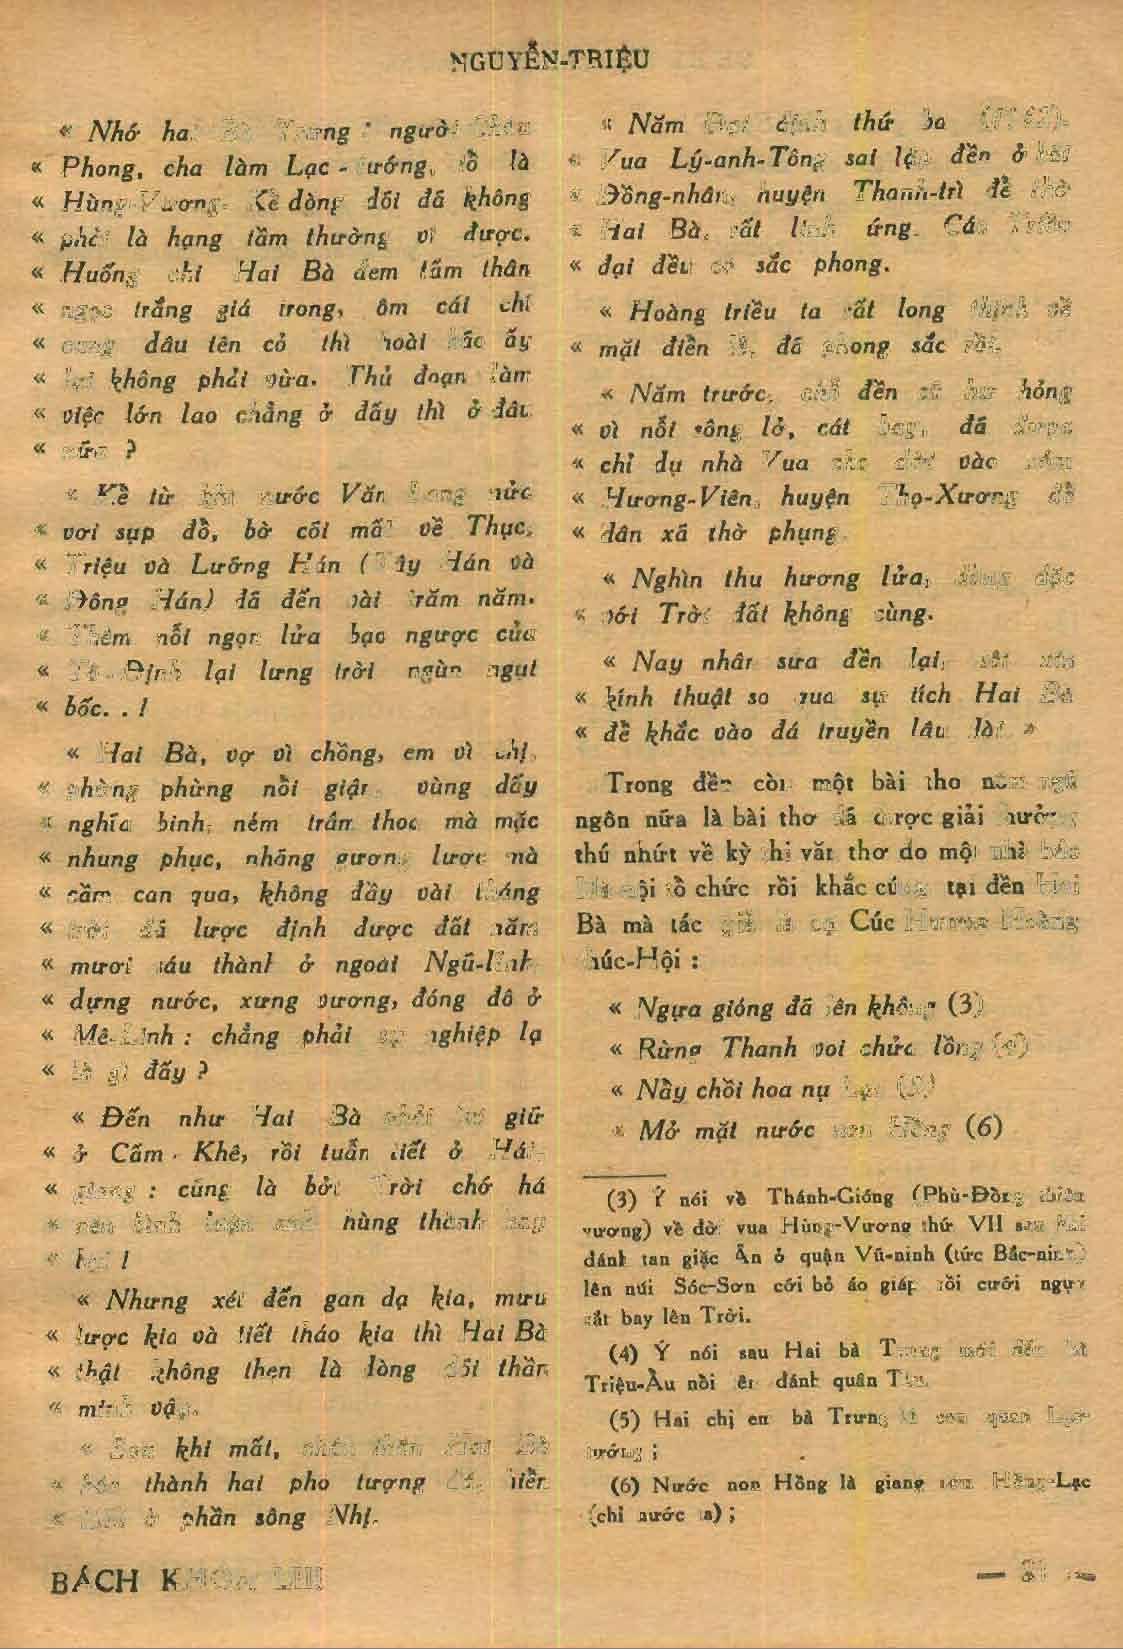 NGUYỄN-TRIỆU
« Nhớ hai Bà Trưng : người Châu
« Phong, cha làm Lạc - tướng, tổ là
« Hùng-Vương. Kể dòng dõi đã không
« phải là hạng tầm thường vì được.
« Huống chi Hai Bà đem tấm thân
« ngọc trắng giá trong, ôm cái chí
« cung dâu tên cỏ thì hoài bão ấy
« lại không phải vừa. Thủ đoạn làm
« việc lớn lao chẳng ở đấy thì ở đâu
« nữa ?
« Kể từ khi nước Văn Lang nửa
« vơi sụp đổ, bờ cõi mất về Thục,
« Triệu và Lưỡng Hán (Tây Hán và
« Đông Hán) đã đến vài trăm năm.
« Thêm nỗi ngọn lửa bạo ngược của
« Tô-Định lại lưng trời ngùn ngụt
« bốc. . !
« Hai Bà, vợ vì chồng, em vì chị,
« phừng phừng nổi giận, vùng dấy
« nghĩa binh, ném trâm thoa mà mặc
« nhung phục, nhãng gương lược mà
« cầm can qua, không đầy vài tháng
« trời đã lược định được đất năm
« mươi sáu thành ở ngoài Ngũ-lĩnh
« dựng nước, xưng vương, đóng đô ở
« Mê-Linh : chẳng phải sự nghiệp lạ
« là gì đấy ?
« Đến như Hai Bà phải lui giữ
« ở Cấm - Khê, rồi tuẫn tiết ở Hát
« giang : cũng là bởi Trời chớ há
« nên bình luận anh hùng thành hay
« bại !
« Nhưng xét đến gan dạ kia, mưu
« lược kia và tiết tháo kia thì Hai Bà
« thật không thẹn là dòng dõi thần
« minh vậy.
« Sau khi mất, chân thân Hai Bà
« hóa thành hai pho tượng đá, hiển
« ở phần sông Nhị.
« Năm Đại định thứ ba
« Vua Lý-anh-Tông sai lập đền ở bãi
« Đồng-nhân, huyện Thanh-trì để thờ
« Hai Bà, rất linh ứng. Các Triều
« đại đều có sắc phong.
« Hoàng triều ta rất long thịnh về
« mặt điển lễ, đã phong sắc rồi.
« Năm trước, chỗ đền cũ hư hỏng
« vì nỗi sông lở, cát bay, đã được
« chỉ dụ nhà Vua cho dời vào xóm
« Hương-Viên, huyện Thọ-Xương để
« dân xã thờ phụng.
« Nghìn thu hương lửa, dằng dặc
« với Trời đất không cùng.
« Nay nhân sửa đền lại,
« kính thuật so qua sự tích Hai Bà
« để khắc vào đá truyền lâu dài. »
Trong đền còn một bài thơ nôm ngũ
ngôn nữa là bài thơ đã được giải thưởng
thứ nhứt về kỳ thi văn thơ do một nhà báo
Hà-nội tổ chức rồi khắc cúng tại đền Hai
Bà mà tác giả là cụ Cúc Hương Hoàng
thúc-Hội :
« Ngựa gióng đã lên không (3)
« Rừng Thanh voi chửa lồng (4)
« Nầy chồi hoa nụ Lạc (5)
« Mở mặt nước non Hồng (6)
(3) Ý nói về Thánh-Gióng (Phù-Đồng thiên
vương) về đời vua Hùng-Vương thứ VII sau khi
đánh tan giặc Ân ở quận Vũ-ninh (tức Bắc-ninh)
lên núi Sóc-Sơn cởi bỏ áo giáp rồi cưỡi ngựa
sắt bay lên Trời.
(4) Ý nói sau Hai bà Trưng mới đến bà
Triệu-Ẩu nổi lên đánh quân Tàu.
(5) Hai chị em bà Trưng là con quan Lạc-
tướng ;
(6) Nước non Hồng là giang sơn Hồng-Lạc
(chỉ nước ta) ;
BÁCH KHOA LIII